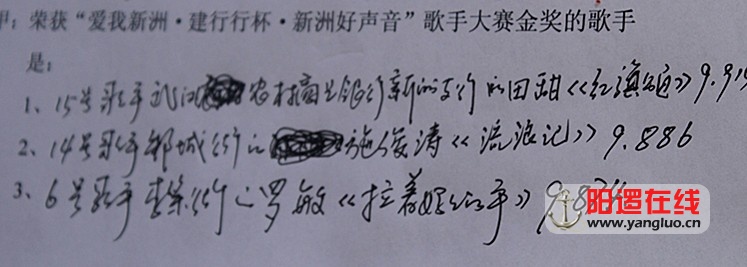 甲：荣获“爱我新洲·建行行杯·新洲好声音”歌手大赛金奖的歌手
是：
1、15号歌手武汉农村商业银行新洲支行的田甜《红旗颂》9.91
2、14号歌手邾城街的施俊涛《流浪记》9.886
3、6号歌手李集街的罗敏《拉着妈妈的手》9.87
阳逻在线
www.yangluo.cn